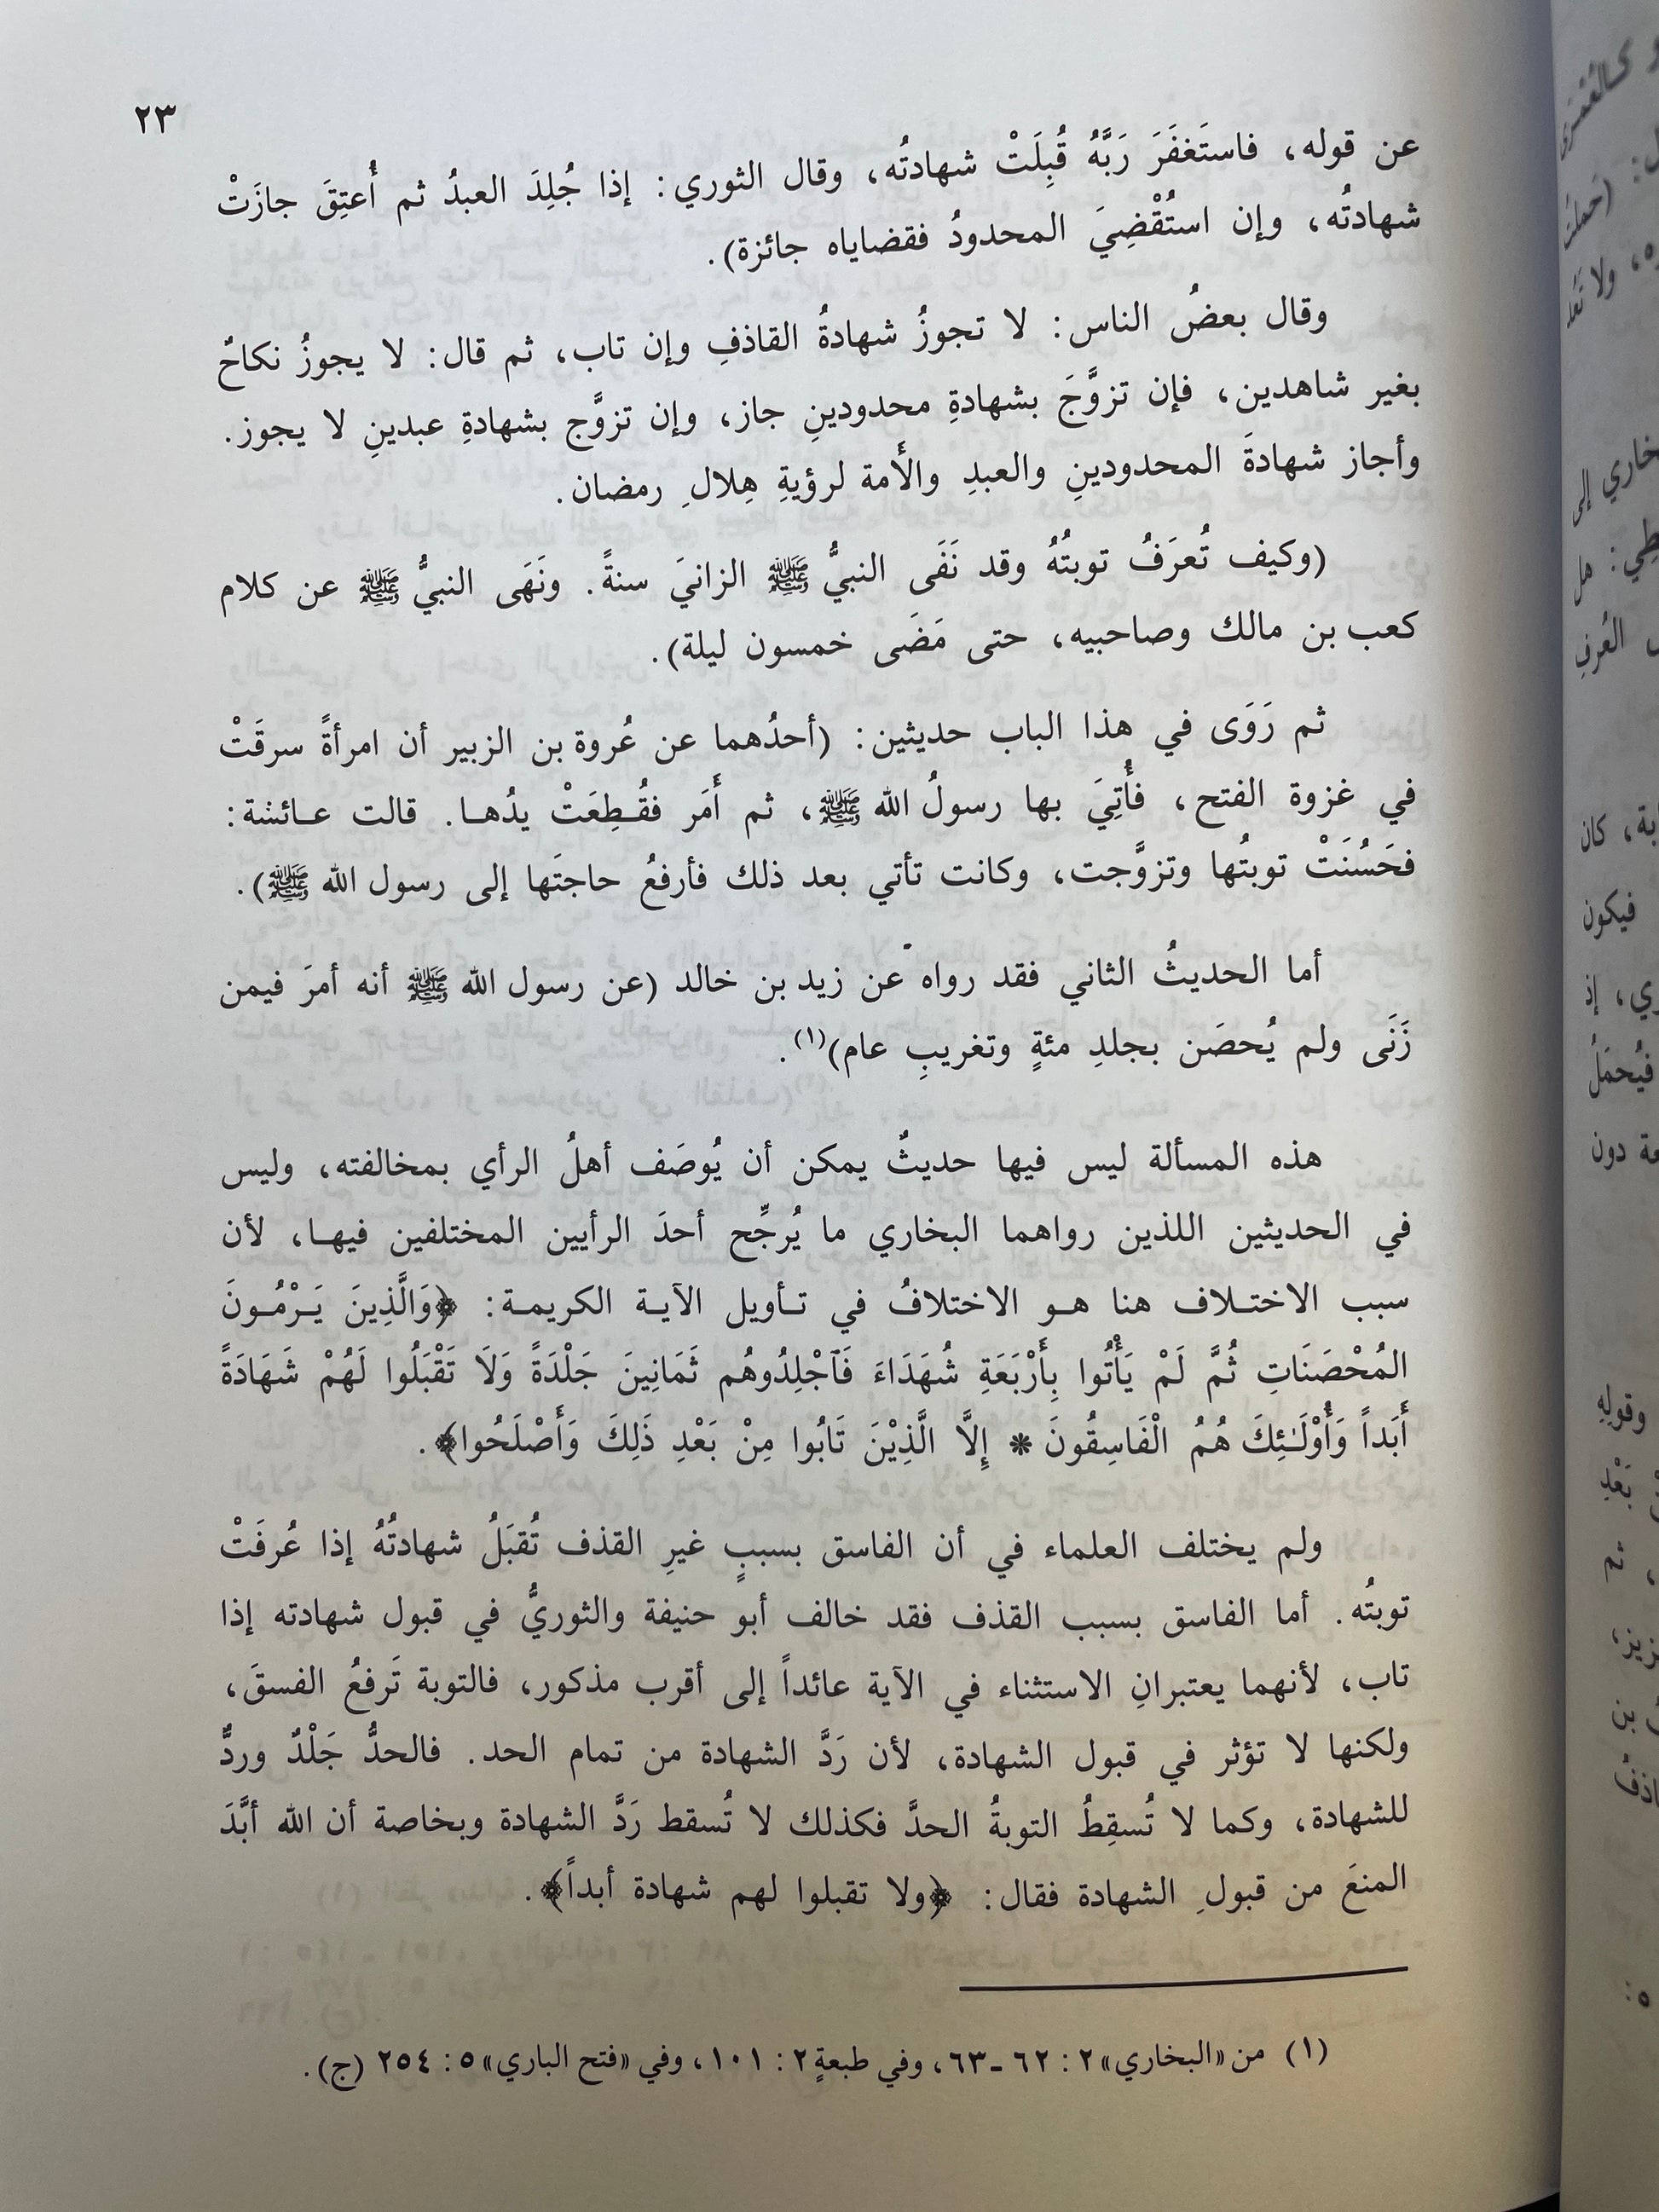 ٢٣
عن قوله، فاستَغفَرَ رَبَّهُ قُبِلَتْ شهادتُه، وقال الثوري: إذا جُلِدَ العبدُ ثم أُعتِقَ جازَتْ
شهادتُه، وإن استُقْضِيَ المحدودُ فقضاياه جائزة).
وقال بعضُ الناس: لا تجوزُ شهادةُ القاذفِ وإن تاب، ثم قال: لا يجوزُ نكاحٌ
بغير شاهدين، فإن تزوَّجَ بشهادةِ محدودينِ جاز، وإن تزوَّج بشهادةِ عبدينِ لا يجوز.
وأجاز شهادةَ المحدودينِ والعبدِ والأَمة لرؤيةِ هِلالِ رمضان.
(وكيف تُعرَفُ توبتُهُ وقد نَفَى النبيُّ ﷺ الزانيَ سنةً. ونَهَى النبيُّ ﷺ عن كلام
كعب بن مالك وصاحبيه، حتى مَضَى خمسون ليلة).
ثم رَوَى في هذا الباب حديثين: (أحدُهما عن عُروة بن الزبير أن امرأةً سرقَتْ
في غزوة الفتح، فأُتِيَ بها رسولُ الله ﷺ، ثم أَمَر فقُطِعَتْ يدُها. قالت عائشة:
فحَسُنَتْ توبتُها وتزوَّجت، وكانت تأتي بعد ذلك فأرفعُ حاجتَها إلى رسول الله ﷺ).
أما الحديثُ الثاني فقد رواه عن زيد بن خالد (عن رسول الله ﷺ أنه أمرَ فيمن
زَنَى ولم يُحصَن بجلدِ مئةٍ وتغريبِ عام)(١).
هذه المسألة ليس فيها حديثٌ يمكن أن يُوصَف أهلُ الرأي بمخالفته، وليس
في الحديثين اللذين رواهما البخاري ما يُرجِّح أحدَ الرأيين المختلفين فيها، لأن
سبب الاختلاف هنا هو الاختلافُ في تأويل الآية الكريمة: ﴿وَالَّذِينَ يَرْمُونَ
المُحْصَنَاتِ ثُمَّ لَمْ يَأْتُوا بِأَرْبَعَةِ شُهَدَاءَ فَٱجْلِدُوهُم ثَمَانِينَ جَلْدَةً وَلَا تَقْبَلُوا لَهُمْ شَهَادَةً
أَبَداً وَأُوْلَـٰئِكَ هُمُ الْفَاسِقُونَ * إِلَّا الَّذِيْنَ تَابُوا مِنْ بَعْدِ ذَلِكَ وَأَصْلَحُوا﴾.
ولم يختلف العلماء في أن الفاسق بسببٍ غيرِ القذف تُقبَلُ شهادتُهُ إذا عُرفَتْ
توبتُه. أما الفاسق بسبب القذف فقد خالف أبو حنيفة والثوريُّ في قبول شهادته إذا
تاب، لأنهما يعتبرانِ الاستثناء في الآية عائداً إلى أقرب مذكور، فالتوبة تَرفعُ الفسقَ،
ولكنها لا تؤثر في قبول الشهادة، لأن رَدَّ الشهادة من تمام الحد. فالحدُّ جَلْدٌ وردٌّ
للشهادة، وكما لا تُسقِطُ التوبةُ الحدَّ فكذلك لا تُسقط رَدَّ الشهادة وبخاصة أن الله أبَّدَ
المنعَ من قبولِ الشهادة فقال: ﴿ولا تقبلوا لهم شهادة أبداً﴾.
(١) من «البخاري» ٢ : ٦٢ - ٦٣، وفي طبعةٍ ٢ : ١٠١، وفي «فتح الباري» ٥ : ٢٥٤ (ج).